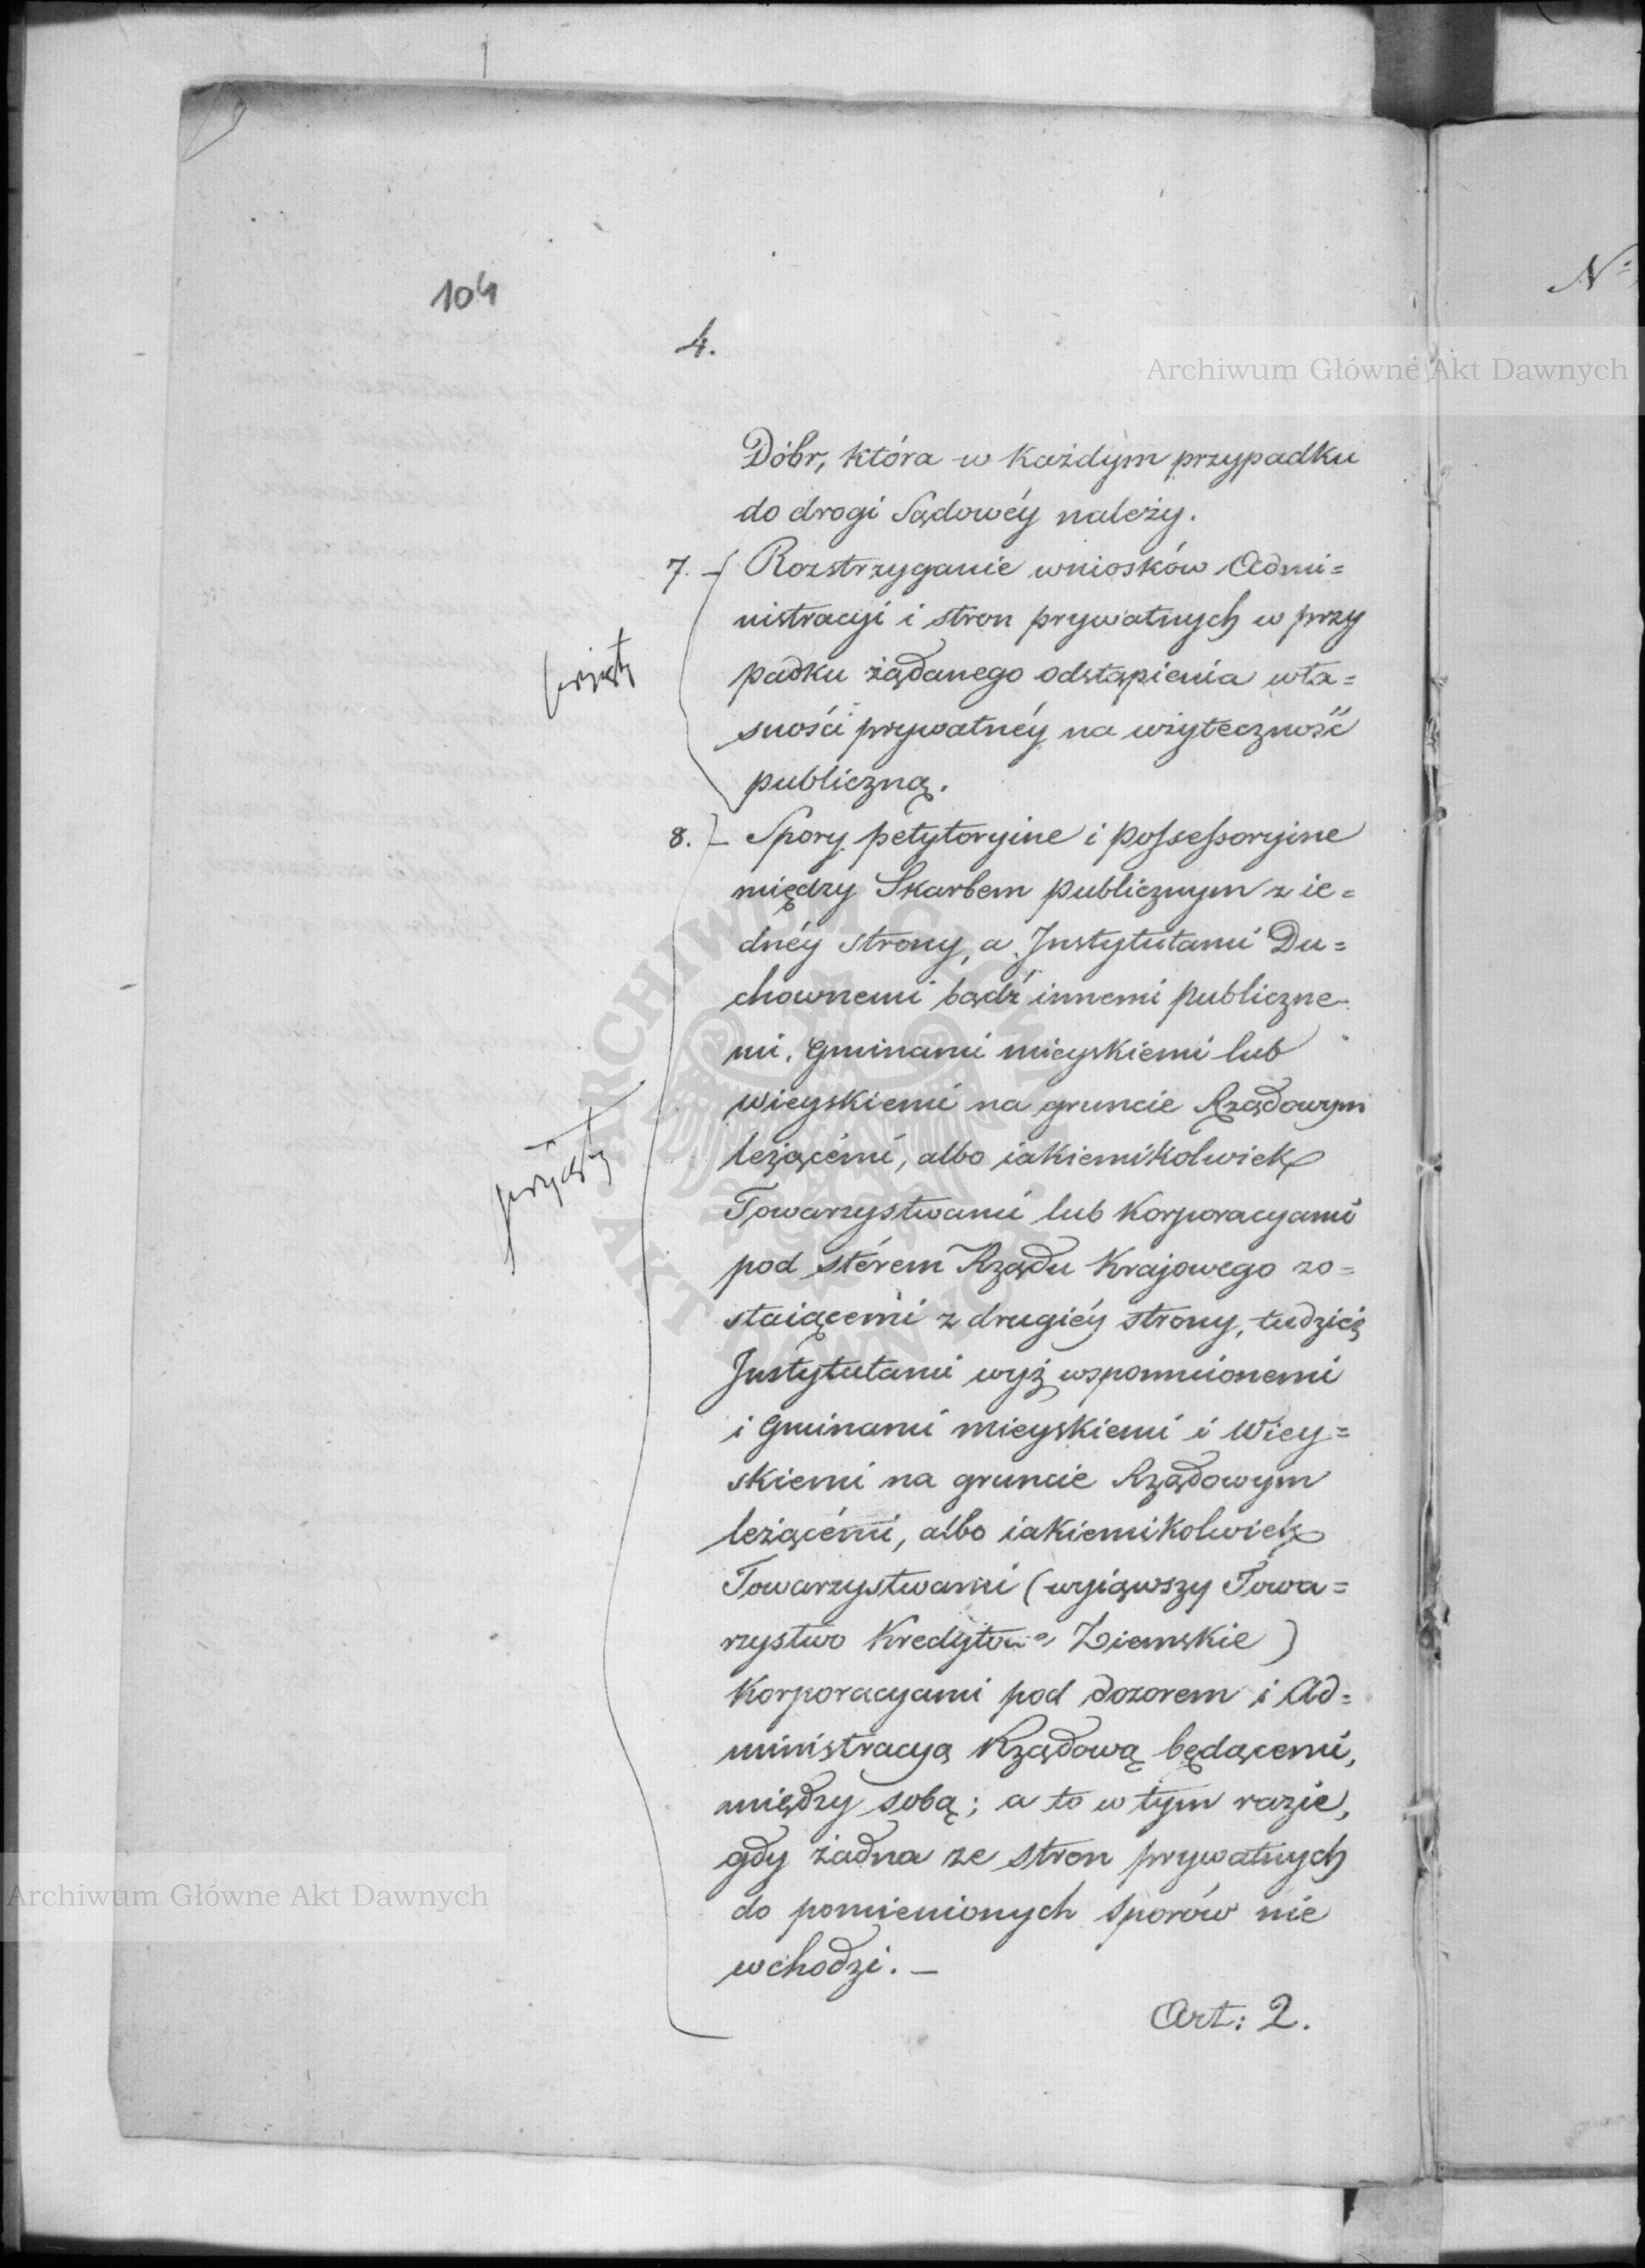 104
4.
N:
Archiwum Główne Akt Dawnych
Dóbr, która w każdym przypadku
do drogi Sądowéy należy.
7. – Rozstrzyganie wniosków Admi=
nistracyi i stron prywatnych w przy
padku żądanego odstąpienia wła=
sności prywatnéy na użyteczność
publiczną.
przyięty
8. – Spory petytoryine i possessoryine
między Skarbem publicznym z ie=
dnéy strony, a Instytutami Du=
chownemi bądź innemi publiczne
mi, Gminami mieyskiemi lub
wieyskiemi na gruncie Rządowym
leżącémi, albo iakiemikolwiek
Towarzystwami lub Korporacyami
pod stérem Rządu Krajowego zo=
staiącemi z drugiéy strony, tudzież
Instytutami wyż wspomnionemi
i Gminami mieyskiemi i Wiey=
skiemi na gruncie Rządowym
leżącémi, albo iakiemikolwiek
Towarzystwami (wyiąwszy Towa=
rzystwo Kredytowe Ziemskie)
Korporacyami pod dozorem i Ad=
ministracyą Rządową będącemi,
między sobą; a to w tym razie,
gdy żadna ze stron prywatnych
do pomienionych sporów nie
wchodzi. –
przyięty
Art: 2.
ARCHIWUM GŁÓWNE AKT DAWNYCH
Archiwum Główne Akt Dawnych